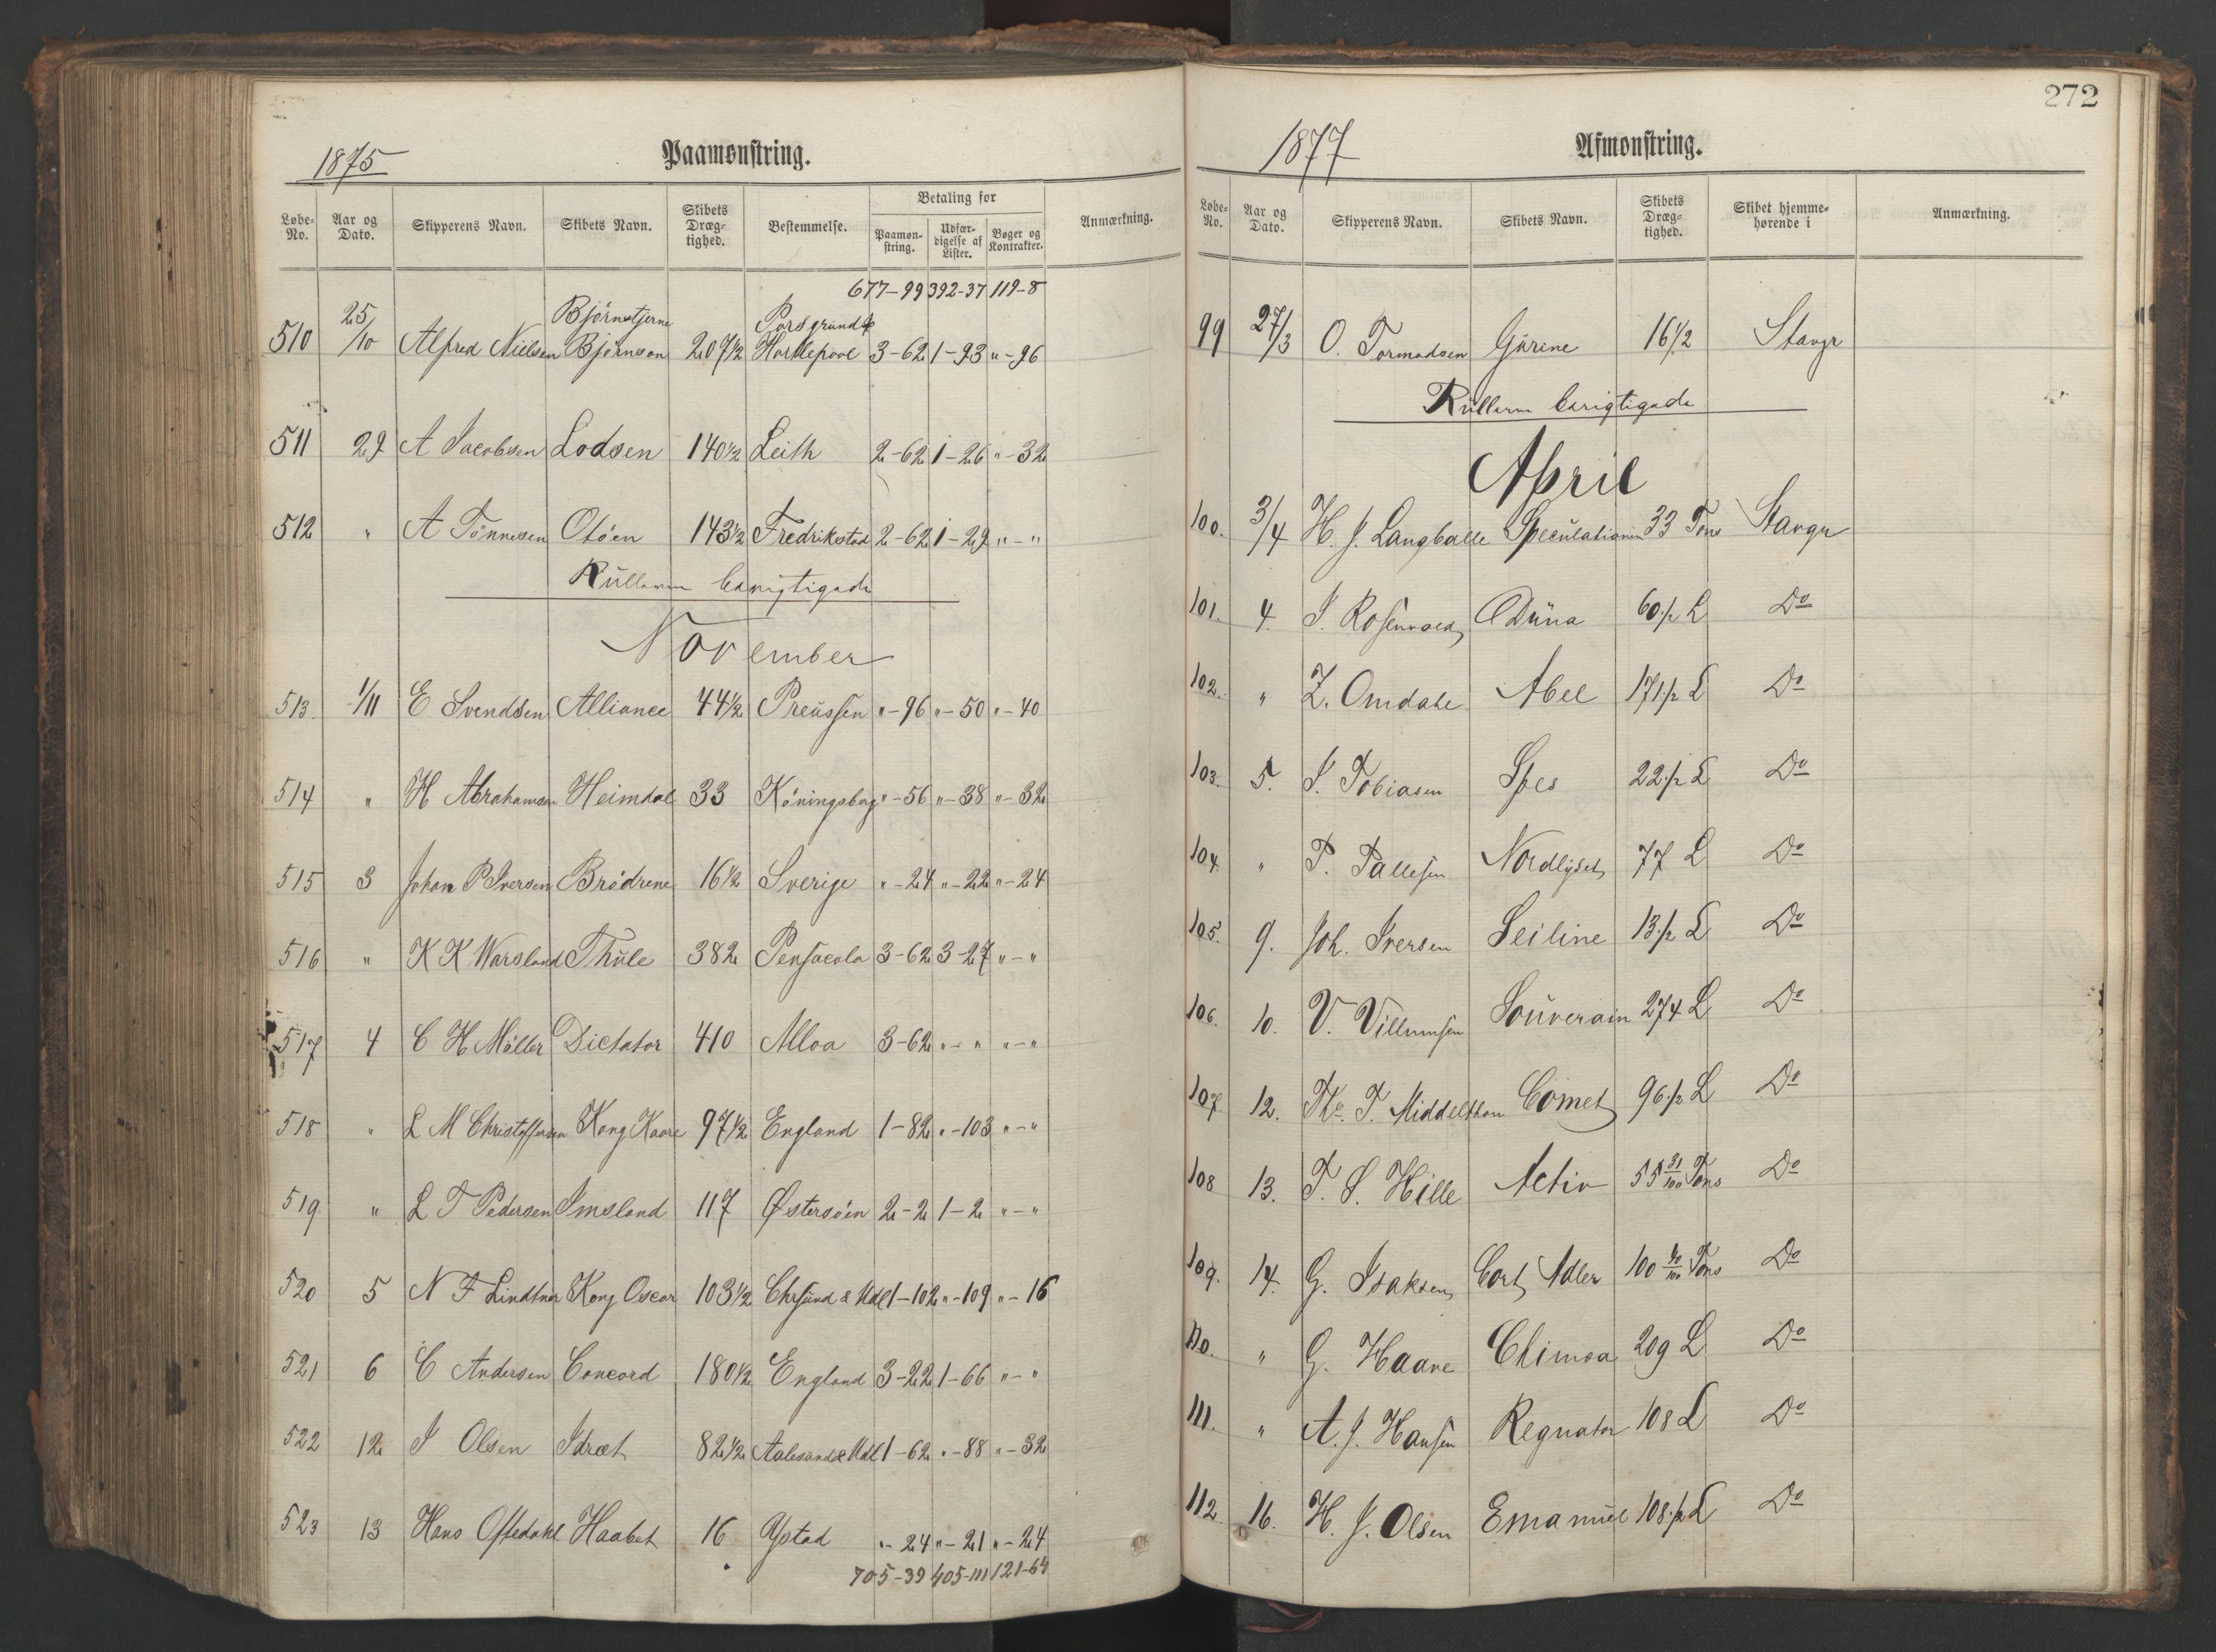 1875 Paamønstring.
Løbe-No. Aar og Dato. Skipperens Navn. Skibets Navn. Skibets Dræg-tighed. Bestemmelse. Betaling for Paamøn-string. Udfær-digelse af Lister. Bøger og Kontrakter. Anmærkning.
677-99 392-37 119-8
510 25/10 Alfred Nielsen Björnstjerne Björnson 207½ Porsgrund & Hartlepool 3-62 1-93 "-96
511 29 A Jacobsen Lodsen 140½ Leith 2-62 1-26 "-32
512 " A Tönnesen Otöen 143½ Fredrikstad 2-62 1-29 "-"
Rullerne berigtigede
November
513. 1/11 E Svendsen Alliance 44½ Preussen "-96 "-50 "-40
514 " H Abrahamsen Heimdal 33 Köningsberg "-56 "-38 "-32
515 3 Johan P Iversen Brödrene 16½ Sverige "-24 "-22 "-24
516 " K K Warsland Thule 382 Pensacola 3-62 3-27 "-"
517 4 C H Möller Dictator 410 Alloa 3-62 "-" "-"
518 " L M Christoffersen Kong Kaare 97½ England 1-82 "-103 "-"
519 " L T Pedersen Imsland 117 Østersöen 2-2 1-2 "-"
520 5 N F Lindtner Kong Oscar 103½ Chrsund & Udl 1-102 "-109 "-16
521 6 C Andersen Concord 180½ England 3-22 1-66 "-"
522 12 J Olsen Idræt 82½ Aalesund & Udl 1-62 "-88 "-32
523 13 Hans Oftedahl Haabet 16 Ystad "-24 "-21 "-24
705-39 405-111 121-64
272
1877 Afmønstring.
Løbe-No. Aar og Dato. Skipperens Navn. Skibets Navn. Skibets Dræg-tighed. Skibet hjemme-hørende i Anmærkning.
99 27/3 O. Tormodsen Gurine 16½ Stavgr
Rullerne berigtigede
April
100. 3/4 H. J. Langballe Speculationen 33 Tons Stavgr
101. 4. J. Rosenvald Düna 60½ L Do
102. " Z. Omdale Abel 171½ L Do
103. 5. S. Tobiasen Spes 22½ L Do
104. " P. Pallesen Nordlyset 77 L Do
105. 9. Joh. Iversen Seiline 13½ L Do
106. 10. V. Villumsen Souverain 274 L Do
107. 12. Th. T. Middelthon Comet 96½ L Do
108 13. T. S. Hille Activ 55 31/100 Tons Do
109. 14. G. Isaksen Cort Adler 100 40/100 Tons Do
110. " G. Haave Chimoa 209 L Do
111. " A. J. Hansen Regnator 108 L Do
112 16. H. J. Olsen Emanuel 108½ L Do